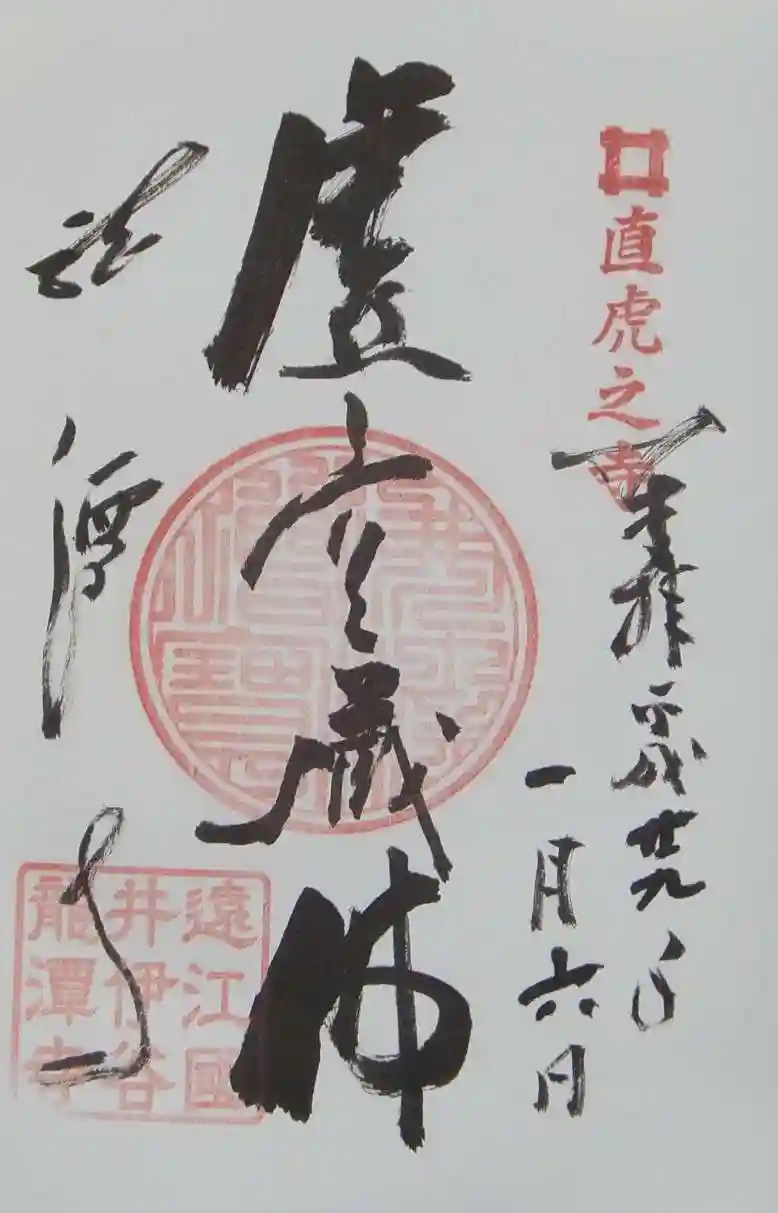 直虎之寺
奉拝 平成廿九年
一月六日
虚空蔵佛
龍潭寺
遠江國
井伊谷
龍潭寺